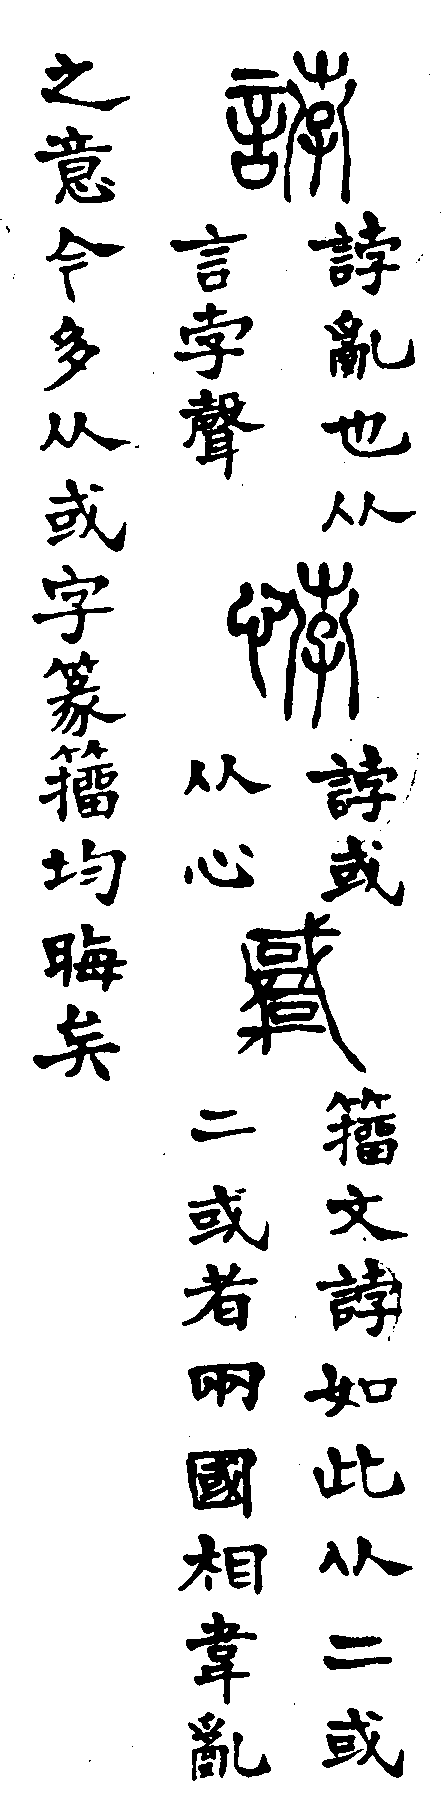 誖
誖亂也从
言孛聲
悖
誖或
从心
𢨋
籒文誖如此从二或
二或者兩國相韋亂
之意今多从或字篆籒均晦矣